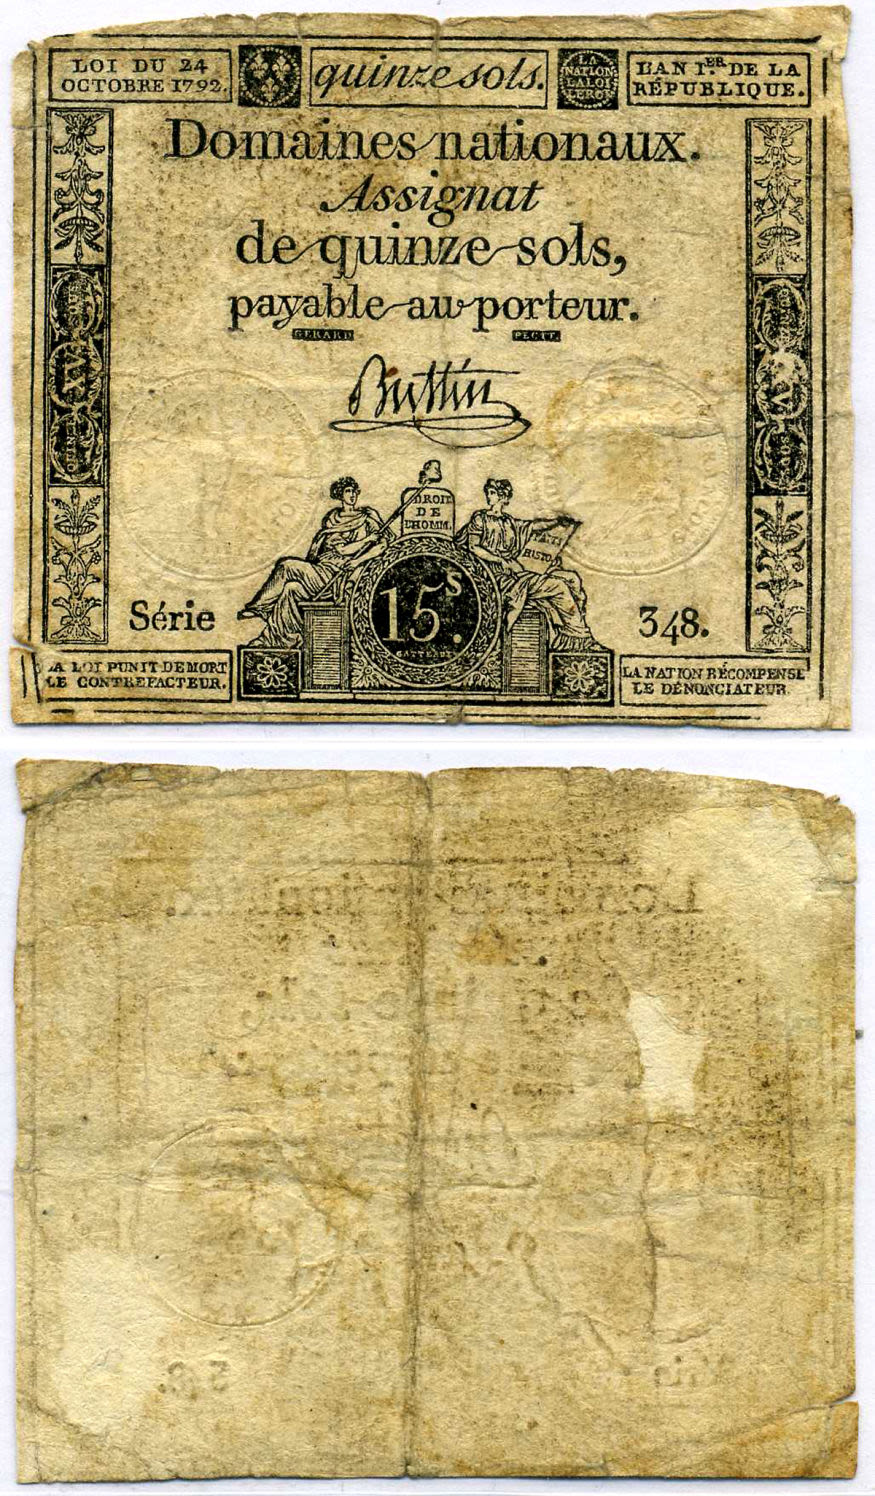 LOI DU 24
OCTOBRE 1792.
quinze sols.
LA
NATION
LA LOI
L'AN I.ER DE LA
RÉPUBLIQUE.
Domaines nationaux.
Assignat
de quinze sols,
payable au porteur.
GERARD
FECIT.
Buttin
DROIT
DE
L'HOMM.
15s.
Série 348.
LA LOI PUNIT DE MORT
LE CONTREFACTEUR.
LA NATION RÉCOMPENSE
LE DÉNONCIATEUR.